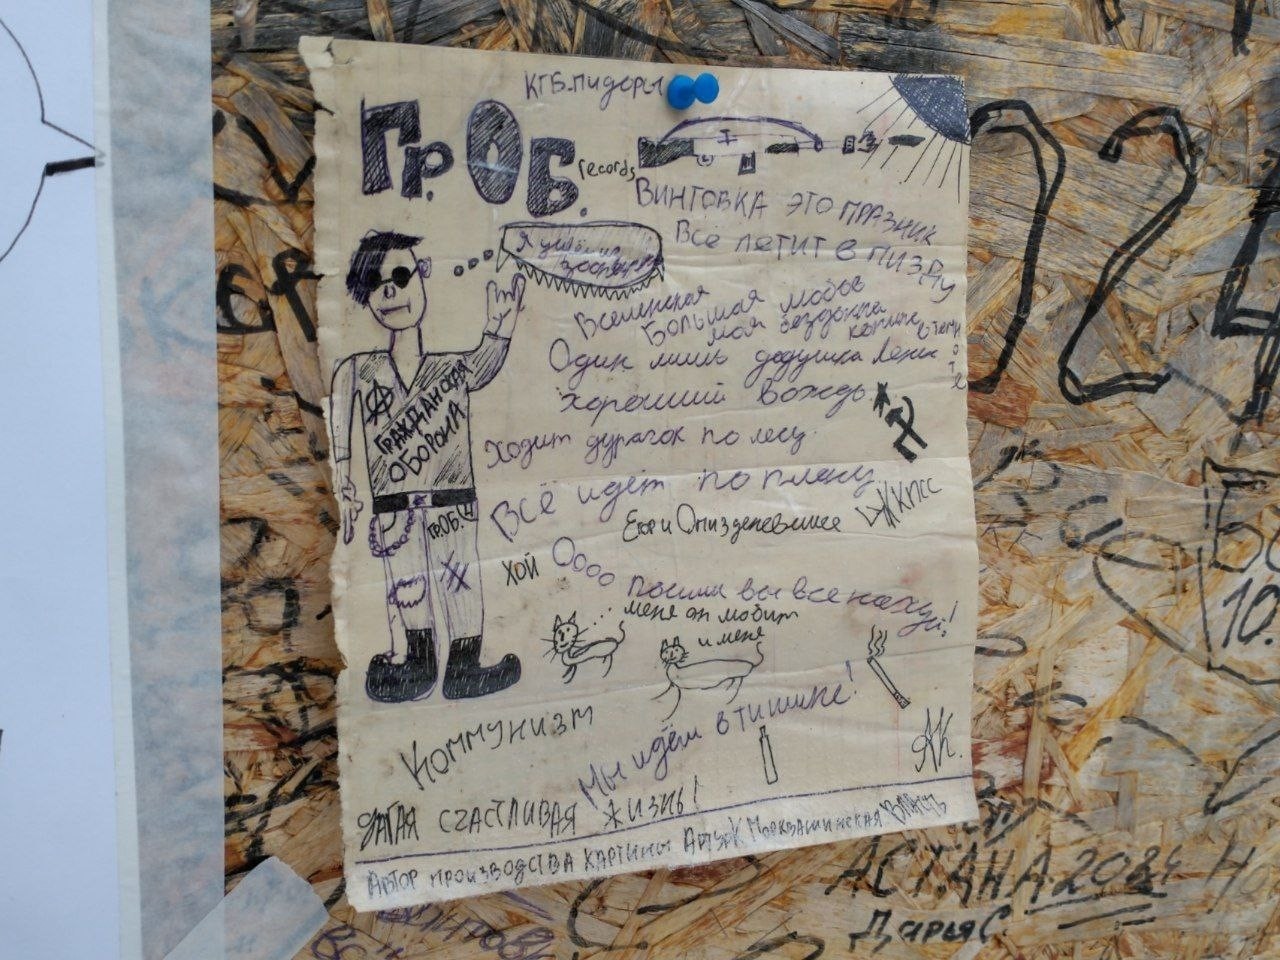 КГБ. пидоры
Гр.Об.
records
ВИНТОВКА ЭТО ПРАЗНИК
ВСЁ ЛЕТИТ В ПИЗДУ
Я
Вселенская
Большая любовь
моя бездонка
копилка в темноте
Один лишь дедушка Ленин
хороший вождь
А
ГРАЖДАНСКАЯ
ОБОРОНА
Ходит дурачок по лесу.
Всё идёт по плану
КПСС
ГР.ОБ.
Егор и Опизденевшие
ХОЙ
Оооо
пошли вы все нахуй!
меня он любит
и меня
Коммунизм
Мы идём в тишине!
АК.
СЧАСТЛИВАЯ ЖИЗНЬ!
АВТОР ПРОИЗВОДСТВА КАРТИНЫ АРТУР К МОРКВАШИНСКАЯ ВЛАСТЬ
124
ef
10.
АСТАНА 2024
Дарья С.